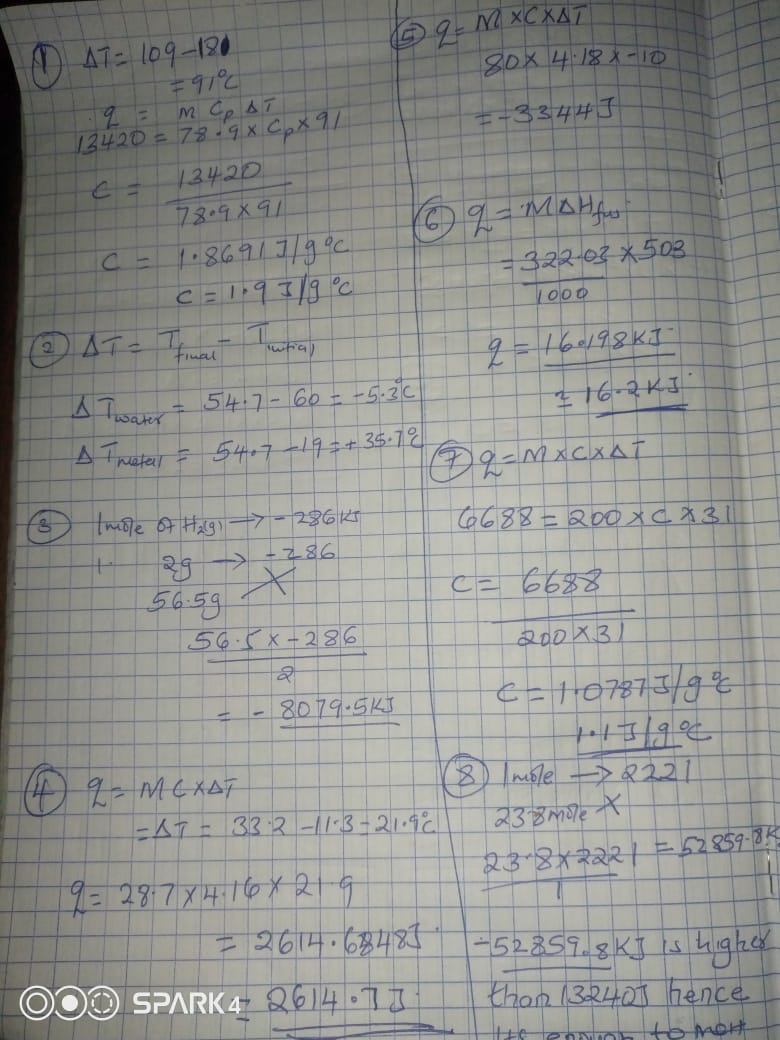 ① ΔT = 109 - 18
= 91°C
q = m Cp ΔT
13420 = 78.9 × Cp × 91
C = 13420
78.9 × 91
C = 1.8691 J/g°C
C = 1.9 J/g°C
② ΔT = Tfinal - Tinitial
ΔTwater = 54.7 - 60 = -5.3°C
ΔTmetal = 54.7 - 19 = +35.7°C
③ 1mole of H2(g) → -286KJ
2g → -286
56.5g
56.5 × -286
2
= - 8079.5KJ
④ q = MC×ΔT
= ΔT = 33.2 - 11.3 = 21.9°C
q = 28.7 × 4.16 × 21.9
= 2614.6848J
= 2614.7J
⑤ q = M×C×ΔT
80 × 4.18 × -10
= -3344J
⑥ q = MΔHfus
= 322.03 × 503
1000
q = 16.198KJ
= 16.2KJ
⑦ q = M×C×ΔT
6688 = 200 × C × 31
C = 6688
200 × 31
C = 1.0787J/g°C
1.1J/g°C
⑧ 1mole → 2221
23.8mole
23.8×2221 = 52859.8K
1
-52859.8KJ is higher
than 13240J hence
its enough to melt
SPARK 4